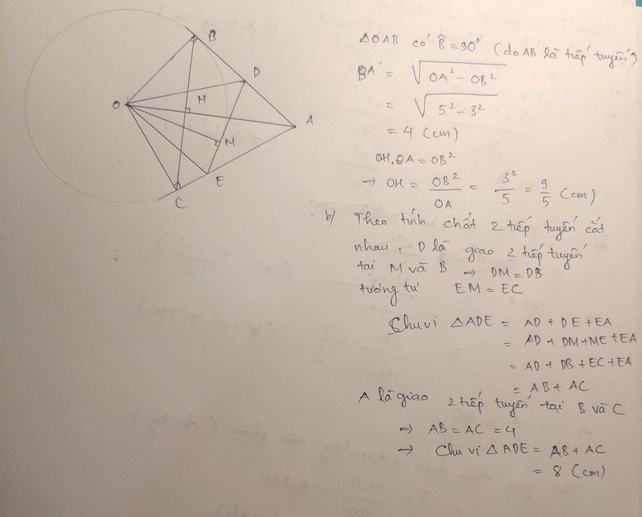 B
D
O
H
A
M
E
C
ΔOAB có B̂ = 90° (do AB là tiếp tuyến)
BA = √(OA² - OB²)
= √(5² - 3²)
= 4 (cm)
OH.OA = OB²
→ OH = OB²/OA = 3²/5 = 9/5 (cm)
b/ Theo tính chất 2 tiếp tuyến cắt
nhau, D là giao 2 tiếp tuyến
tại M và B → DM = DB
tương tự EM = EC
Chu vi ΔADE = AD + DE + EA
= AD + DM + ME + EA
= AD + DB + EC + EA
= AB + AC
A là giao 2 tiếp tuyến tại B và C
→ AB = AC = 4
→ Chu vi ΔADE = AB + AC
= 8 (cm)